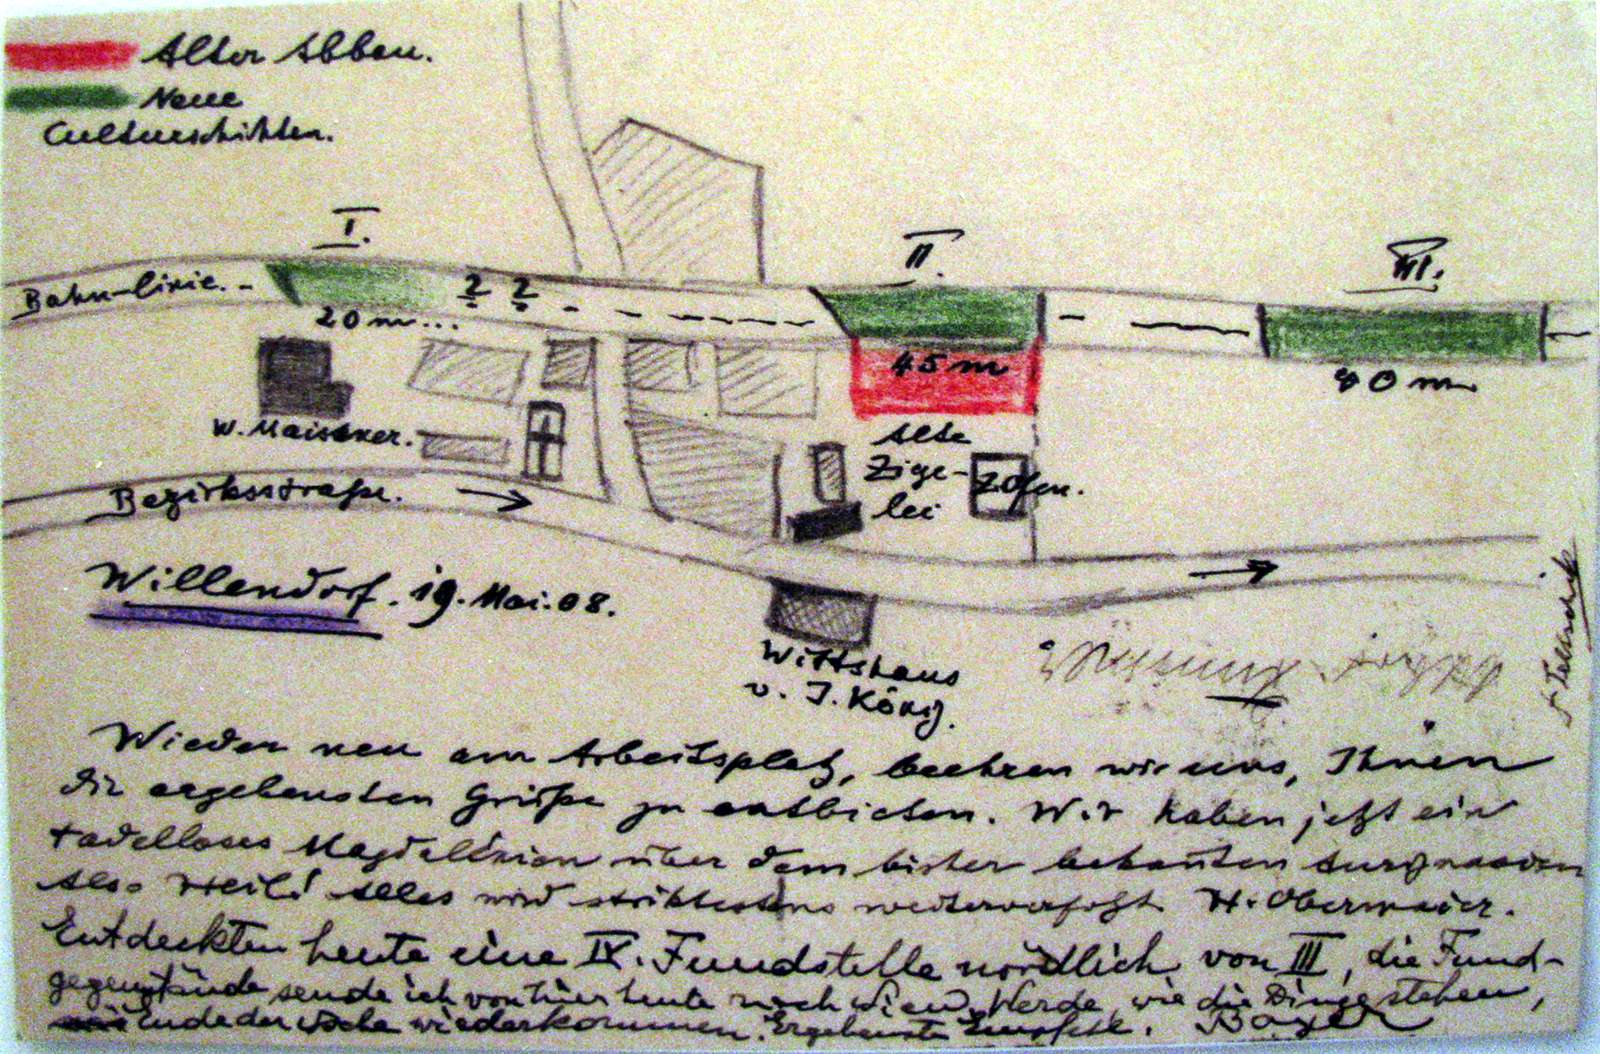 Alter Abbau.
Neue
Culturschichten.
I.
II.
III.
Bahn-linie.
2 2
20 m...
45 m
90 m
W. Maisxner.
Alte
Zige-
lei
Zofen.
Bezirksstraße.
Willendorf. 19. Mai. 08.
Wittshaus
v. J. König.
Wieder neu am Arbeitsplatz, beehren wir uns, Ihnen
die ergebensten Grüße zu entbieten. Wir haben jetzt ein
tadelloses Magdalénien über dem bisher bekan̄ten Aurignacien
Also Heil! Alles wird striktestens weiterverfolgt. H. Obermaier.
Entdeckten heute eine IV. Fundstelle nördlich von III, die Fund-
gegenstände sende ich von hier heute nach Wien. Werde, wie die Dinge stehen,
Ende der Woche wiederkommen. Ergebenste Empfehl. Bayer